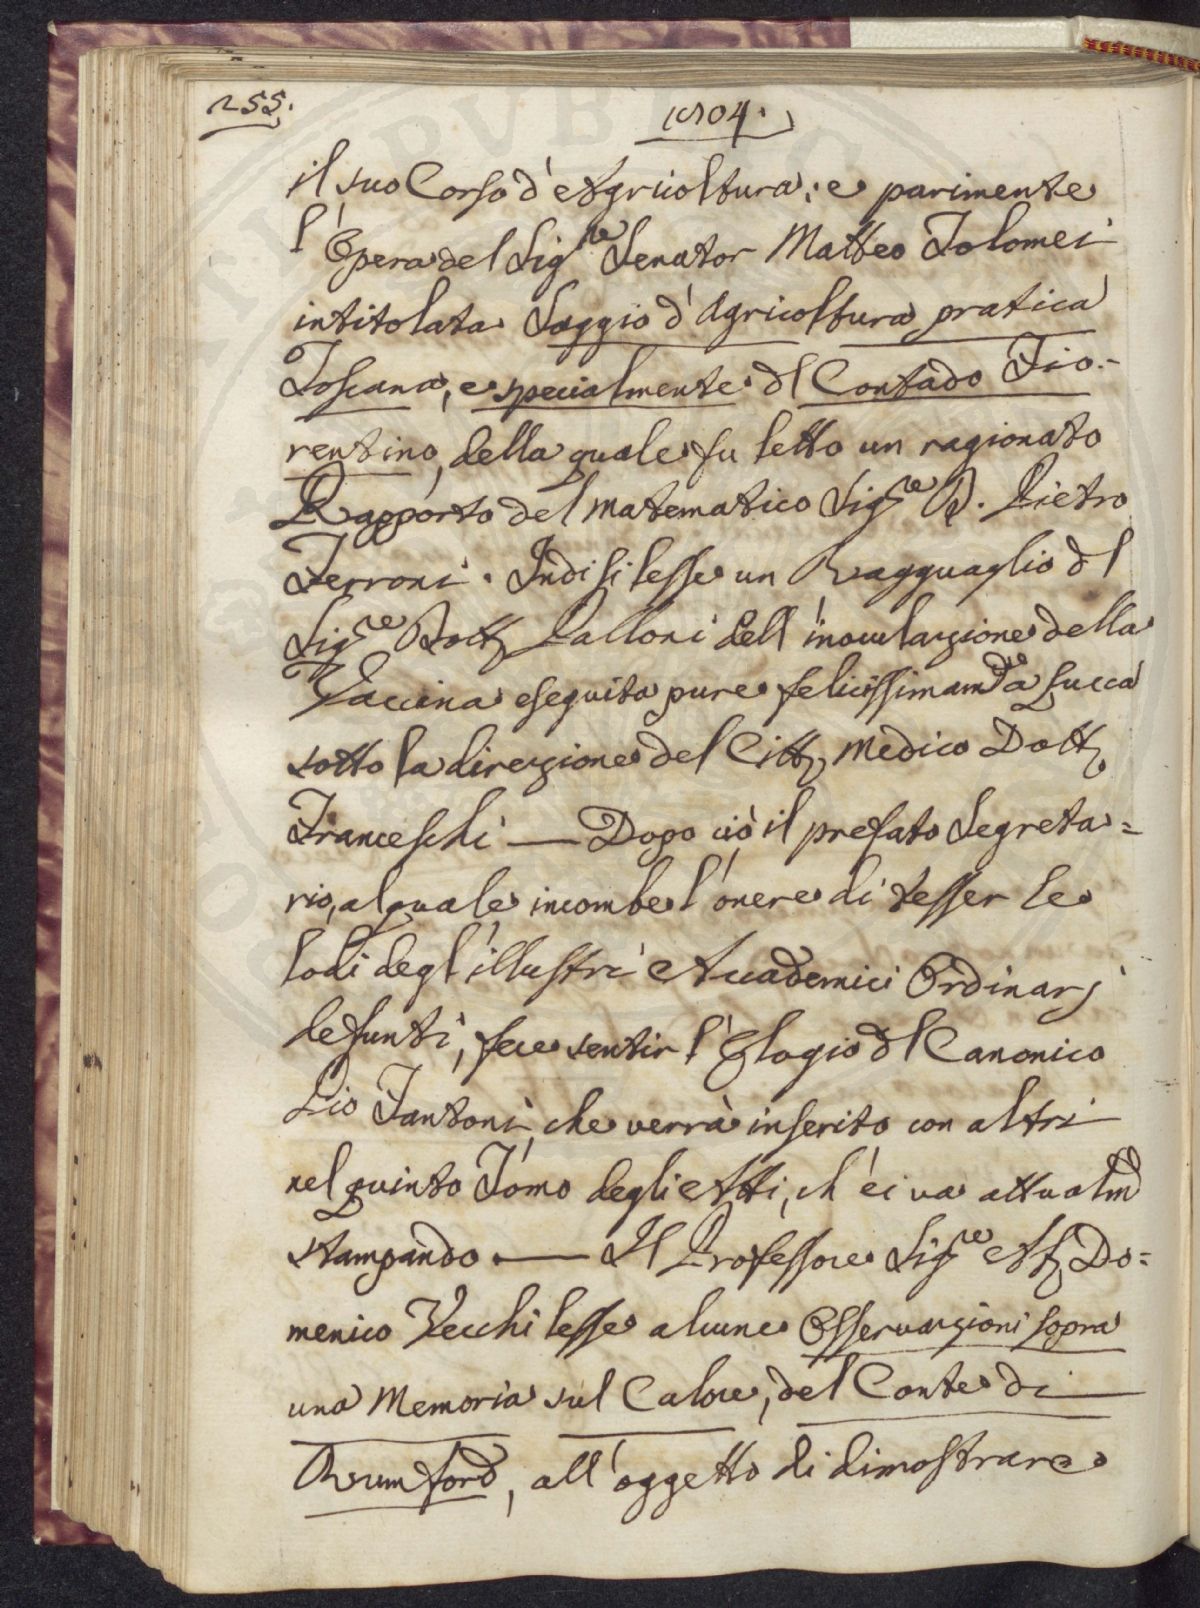 255.
1804.
il suo Corso d'Agricoltura; e parimente
l'Opera del Sig.re Senator Matteo Tolomei
intitolata Saggio d'Agricoltura pratica
Toscana, e specialmente dl Contado Fio-
rentino, della quale fu letto un ragionato
Rapporto del Matematico Sig.re D. Pietro
Ferroni. Indi si lesse un Ragguaglio dl
Sig.re Dott. Palloni dell'inoculazione della
Vaccina eseguita pure felicissimamte a Lucca
sotto la direzione del Citt. Medico Dott.
Franceschi — Dopo ciò il prefato Segreta=
rio, al quale incombe l'onere di tesser le
lodi degl'illustri Accademici Ordinarj
defunti, fece sentir l'Elogio dl Canonico
Pio Fantoni, che verrà inserito con altri
nel quinto Tomo degli Atti, ch'ei va attualm
stampando. — Il Professore Sig.re Ab. Do=
menico Vecchi lesse alcune Osservazioni sopra
una Memoria sul Calore, del Conte di
Rumford, all'oggetto di dimostrare